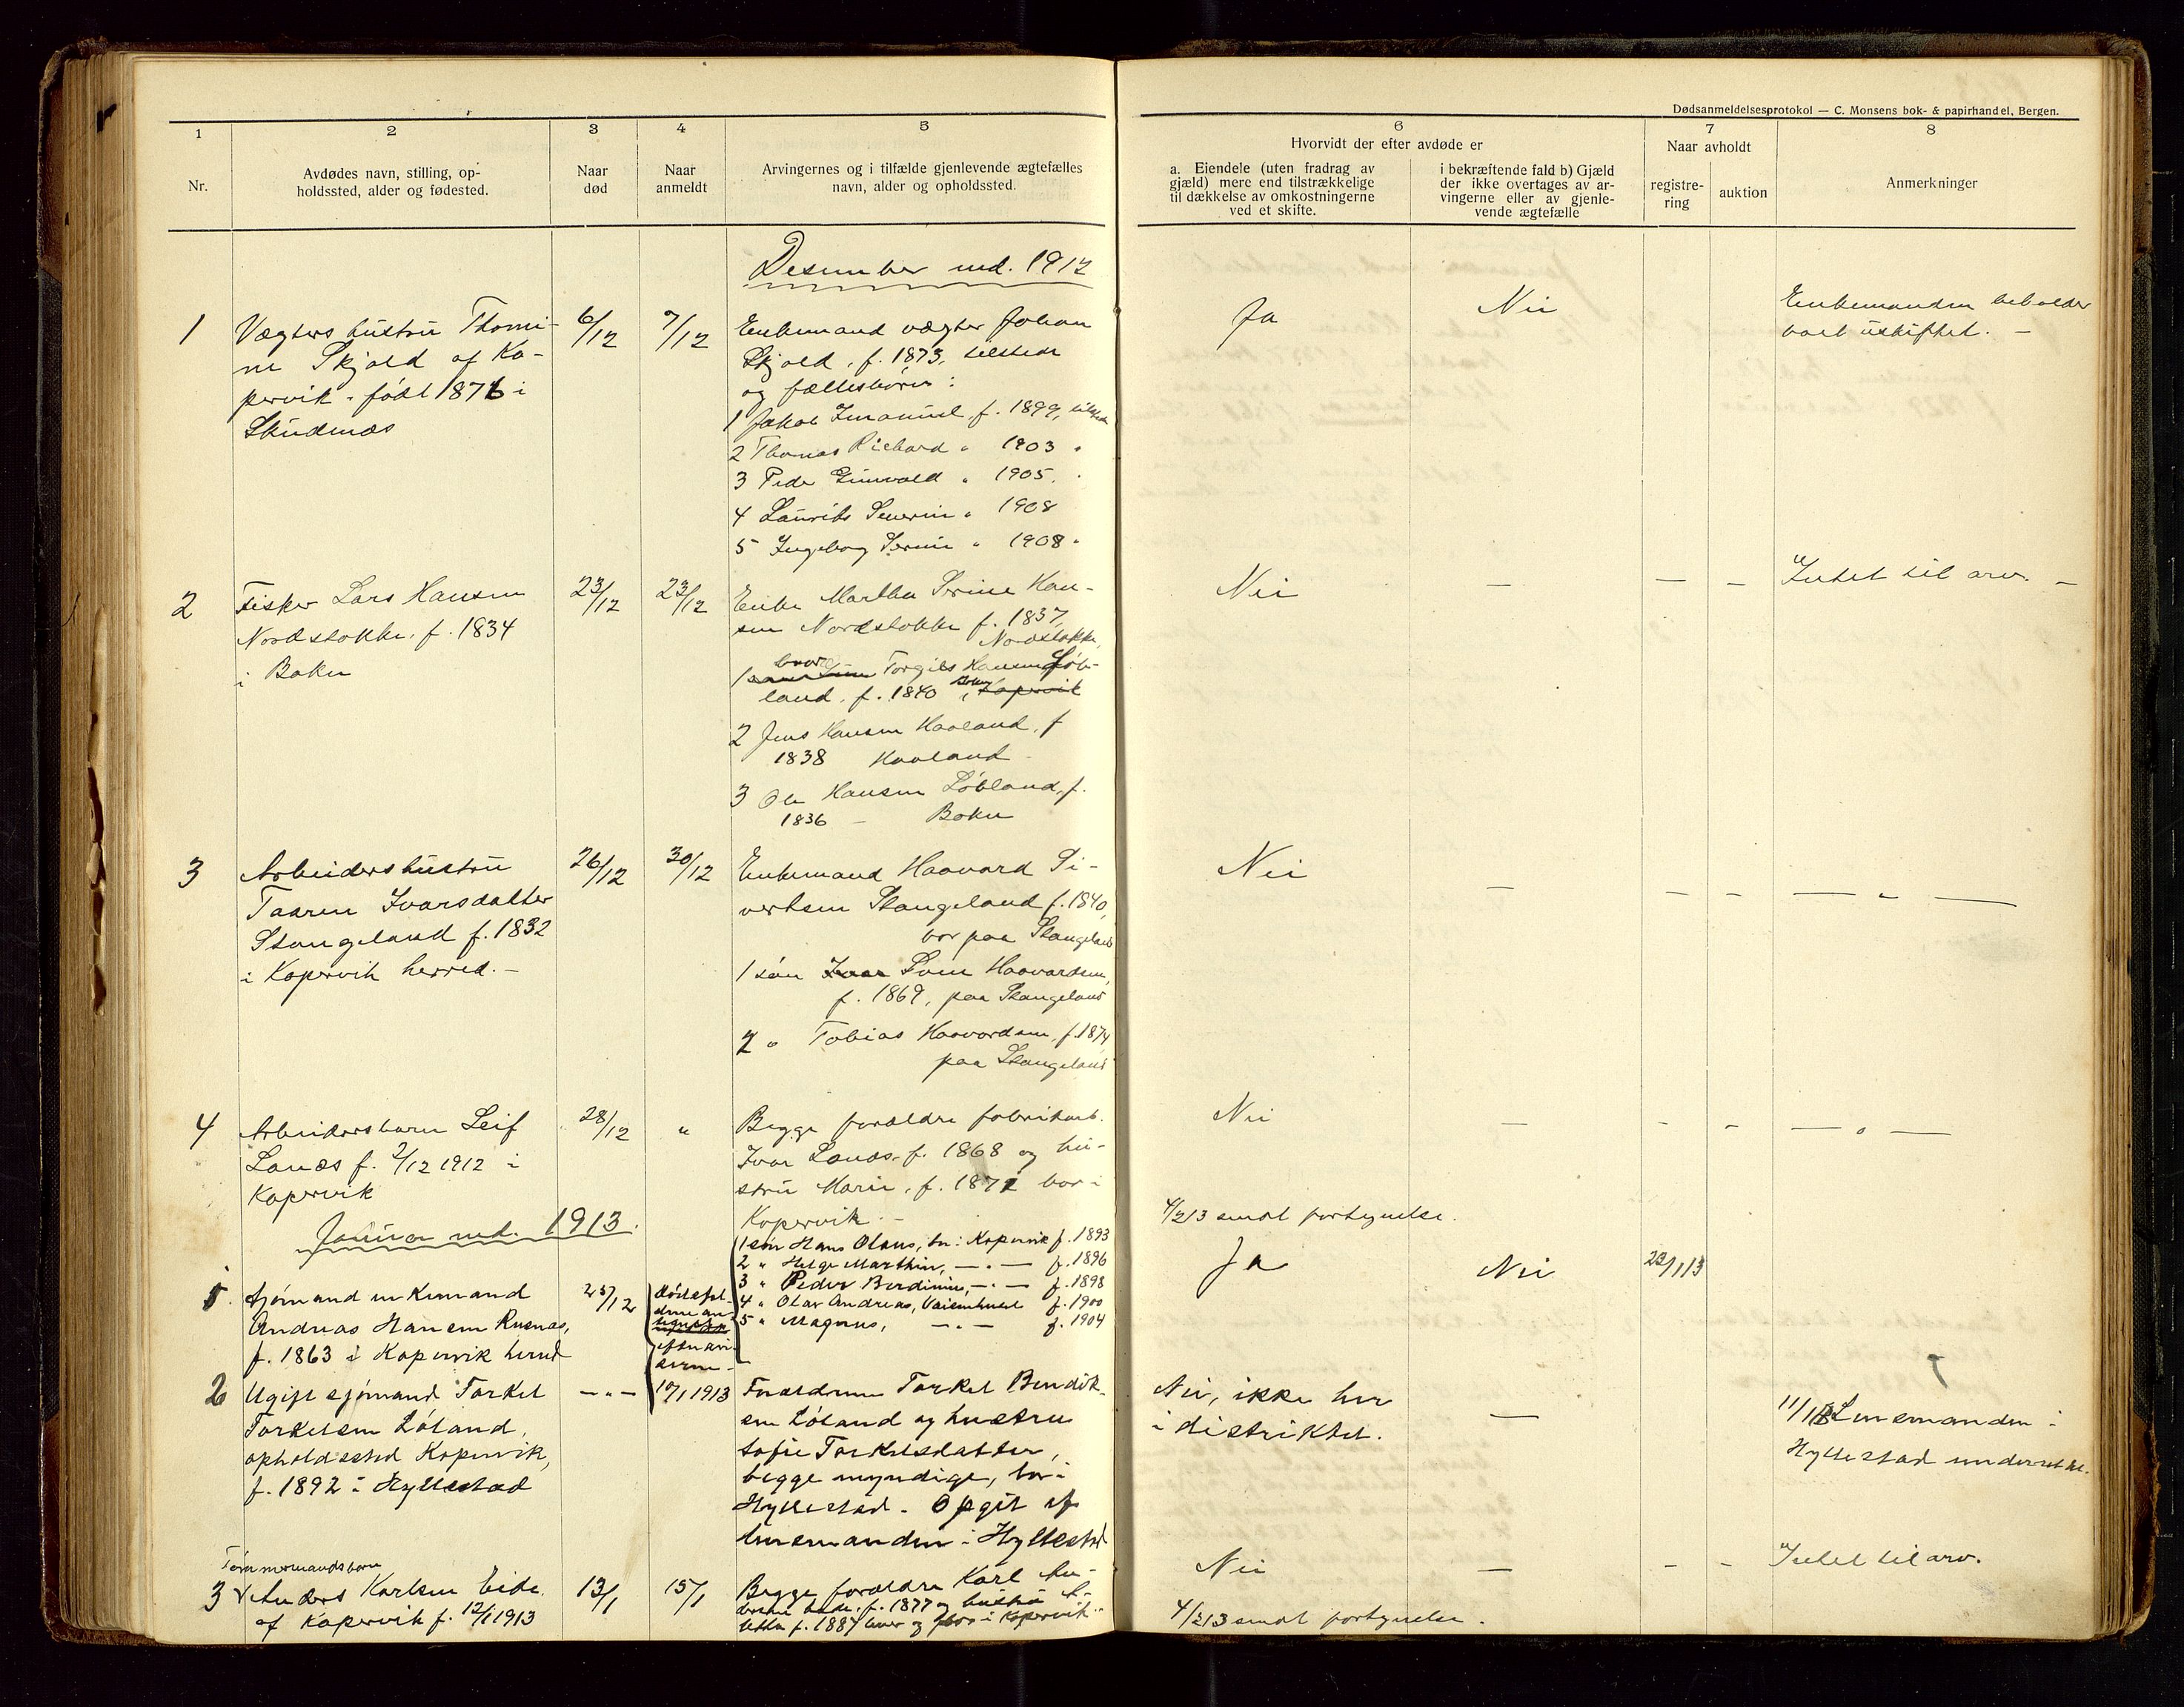 Dødsanmeldelsesprotokol — C. Monsens bok- & papirhandel, Bergen.
1
2
3
4
5
6
7
8
Nr.
Avdødes navn, stilling, op-
holdssted, alder og fødested.
Naar
død
Naar
anmeldt
Arvingernes og i tilfælde gjenlevende ægtefælles
navn, alder og opholdssted.
Hvorvidt der efter avdøde er
a. Eiendele (uten fradrag av
gjæld) mere end tilstrækkelige
til dækkelse av omkostningerne
ved et skifte.
i bekræftende fald b) Gjæld
der ikke overtages av ar-
vingerne eller av gjenle-
vende ægtefælle
Naar avholdt
registre-
ring
auktion
Anmerkninger
Desember md. 1912
1
Vægters hustru Thomi-
ne Skjold af Ko-
pervik. født 1876 i
Skudenæs
6/12
7/12
Enkemand vægter Johan
Skjold, f. 1873, tilstede
og fællesbørn:
1 Jakob Imanuel, f. 1899, tilstede
2 Thomas Richard " 1903 "
3 Peder Einvald " 1905. "
4 Laurits Severin " 1908
5 Ingeborg Serine " 1908 "
Ja
Nei
Enkemanden beholder
boet uskiftet. —
2
Fisker Lars Hansen
Nordstokke, f. 1834
i Bokn
23/12
23/12
Enke Martha Serine Han-
sen Nordstokke f. 1837,
Nordstokke,
1 bror Torgils Hansen Løb-
land, f. 1840 i Bokn Kopervik
2 Jens Hansen Haaland, f
1838 Haaland
3 Ole Hansen Løbland, f.
1836 — Bokn
Nei
—
— —
Intet til arv. —
3
Arbeiders hustru
Taaren Ivarsdatter
Stangeland f. 1832
i Kopervik herred. —
26/12
30/12
Enkemand Haavard Si-
vertsen Stangeland f. 1840,
bor paa Stangeland
1 søn Ivar Sven Haavardsen,
f. 1869, paa Stangeland
2 " Tobias Haavardsen, f. 1874
paa Stangeland
Nei
—
— —
— " —
4
Arbeidersbarn Leif
Lanæs f. 2/12 1912 i
Kopervik
28/12
"
Begge forældre fabrikarb.
Ivar Lanæs, f. 1868 og hu-
stru Marie, f. 1872 bor i
Kopervik. —
Nei
—
— —
— " —
Januar md. 1913.
4/2 13 sendt fortegnelse.
1.
Sjømand enkemand
Andreas Hansen Rusnæs,
f. 1863 i Kopervik herred
25/12
dødsfal-
dene an-
efter avi-
serne —
1 søn Hans Olaus, bor i Kopervik f. 1893
2 " Helge Marthin, — " — f. 1896
3 " Peder Berdinius, — " — f. 1898
4 " Olav Andreas, Vaisenhuset f. 1900
5 " Magnus, — " — f. 1904
Ja
Nei
22/1 13
2
Ugift sjømand Torkel
Torkelsen Løland,
opholdssted Kopervik,
f. 1892 i Hyllestad
— " —
10/1 1913
Forældrene Torkel Bendik-
sen Løland og hustru
Sofie Torkelsdatter,
begge myndige, bor i
Hyllestad. Opgit af
lensmanden i Hyllestad
Nei, ikke her
i distriktet.
—
11/1 13 Lensmanden i
Hyllestad underrettet.
3
Tømmermandsbarn
Anders Karlsen Eide
af Kopervik f. 12/1 1913
13/1
15/1
Begge forældre Karl An-
dersen Eide, f. 1877 og hustru
f. 1884 lever og bor i Kopervik.
Nei
—
— —
Intet til arv.
4/2 13 sendt fortegnelse.